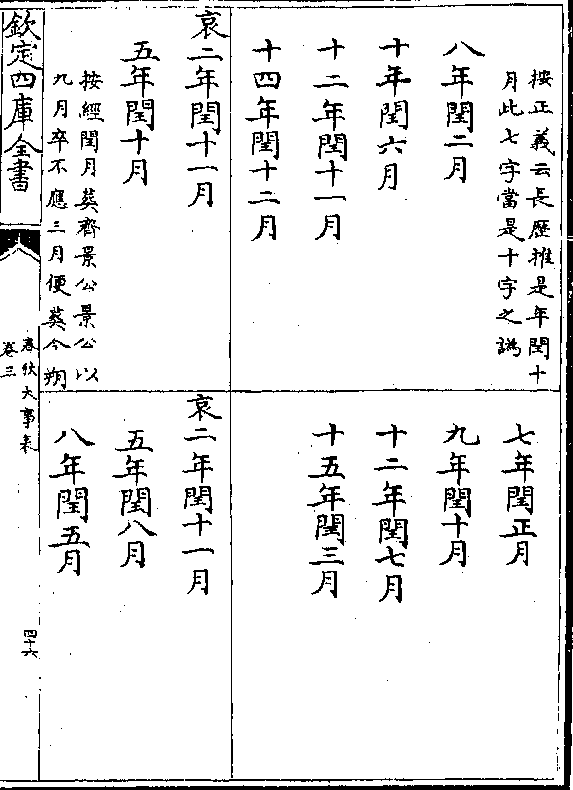 按正義云長歷推是年閏十
月此七字當是十字之譌
八年閏二月
十年閏六月
十二年閏十一月
十四年閏十二月
哀二年閏十一月
五年閏十月
按經閏月葬齊景公景公以
九月卒不應三月便葬今朔
七年閏正月
九年閏十月
十二年閏七月
十五年閏三月
哀二年閏十一月
五年閏八月
八年閏五月
欽定四庫全書
春秋大事表
卷三
四十六